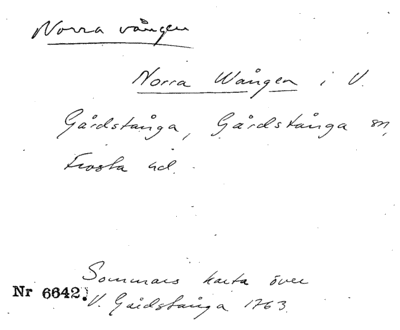 Norra vången
Norra Wången i V.
Gårdstånga, Gårdstånga sn,
Frosta hd.
Sommars karta över
Nr 6642.
V. Gårdstånga 1763